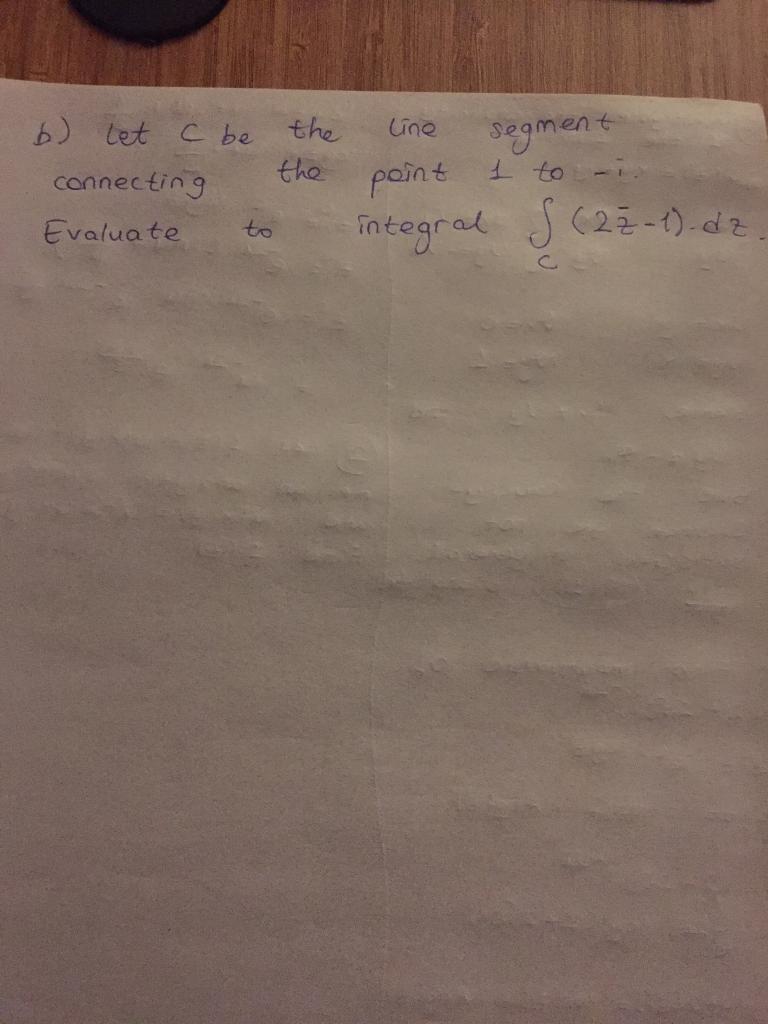 b) Let C be the line segment
connecting the point 1 to -i.
Evaluate to integral ∫_C (2z̄-1).dz.